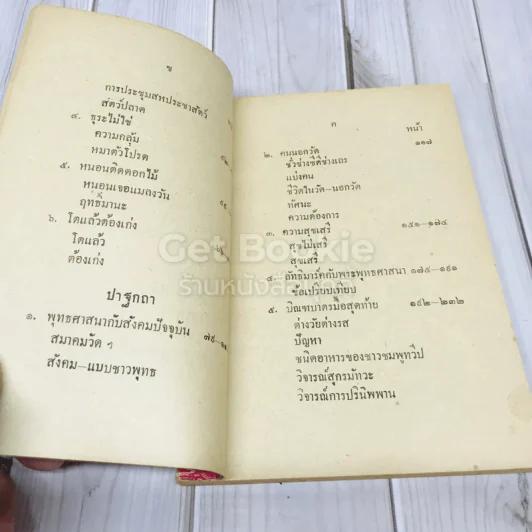 ข
การประชุมสหประชาสัตว์
สัตว์ปลาด
๔. ธุระไม่ใช่
ความกลุ้ม
หมาตัวโปรด
๕. หนอนติดดอกไม้
หนอนเจอแมลงวัน
ฤทธิ์มานะ
๖. โตแล้วต้องเก่ง
โตแล้ว
ต้องเก่ง
ปาฐกถา
๑. พุทธศาสนากับสังคมปัจจุบัน ๗๙–
สมาคมวัด ๆ
สังคม–แบบชาวพุทธ
ค
หน้า
๒. คนนอกวัด ๑๑๗
ชั่วช่างชีดีช่างเถร
แบ่งคน
ชีวิตในวัด–นอกวัด
ทัศนะ
ความต้องการ
๓. ความสุขเสรี ๑๕๑–๑๗๔
สุขไม่เสรี
สุขเสรี
๔. ลัทธิมาร์คกับพระพุทธศาสนา ๑๗๕–๑๙๑
ข้อเปรียบเทียบ
๕. บิณฑบาตรมื้อสุดท้าย ๑๙๒–๒๓๒
ต่างวัยต่างรส
ปัญหา
ชนิดอาหารของชาวชมพูทวีป
วิจารณ์สุกรมัทวะ
วิจารณ์การปรินิพพาน
Get Bookie
ร้านหนังสือ